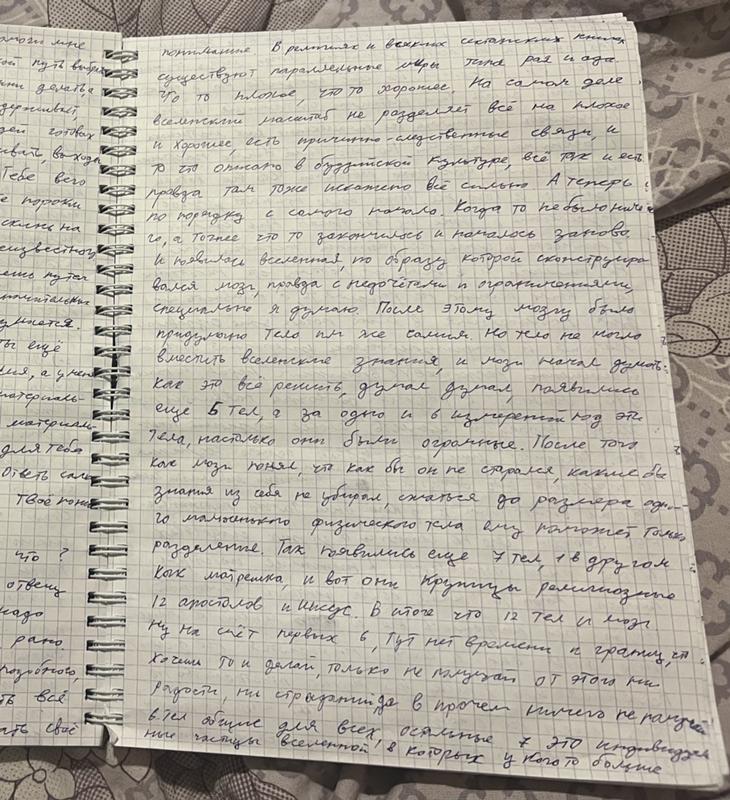 омоги мне
ой путь выбра
ни делать,а
держивает,
дей готовах
ивать, выходы
Тебе всего
е пороки
неизвестно
ешь путся
значительных
ты ещё
ия, а умен
материаль-
материаль
для тебя
Ответь сам
твоё пони
что ?
отвечу
надо
рано.
подобного,
ть всё
ать своё
понимание. В религиях и всяких сектанских книгах
существуют параллельные миры типа рая и ада.
Что то плохое, что то хорошее. На самом деле
вселенский масштаб не разделяет всё на плохое
и хорошее, есть причинно-следственные связи, и
то что описано в буддийской культуре, всё так и есть
правда там тоже искажено всё сильно. А теперь
по порядку с самого начало. Когда то не было ниче
го, а точнее что то закончилось и началось заново
и появилась вселенная, по образу которой сконструиро
вался мозг, правда с недочётами и ограничениями,
специально я думаю. После этому мозгу было
придумано тело им же самим. Но тело не могло
вместить вселенские знания, и мозг начал думать.
Как это всё решить, думал думал, появились
ещё 5 тел, а за одно и 6 измерений под эти
тела, настолько они были огромные. После того
как мозг понял, что как бы он не старался, какие бы
знания из себя не убирал, сжаться до размера одно-
го маленького физического тела ему поможет только
разделение. Так появились еще 7 тел, 1 в другом
как матрешка, и вот они крупицы религиозные
12 апостолов и Иисус. В итоге что 12 тел и мозг
ну на счёт первых 6, тут нет времени и границ, что
хочешь то и делай, только не получай от этого ни
радости, ни страданий, да в прочем ничего не получай
6 тел общие для всех, остальные 7 это индивидуаль
ные частицы вселенной, в которых у кого то больше